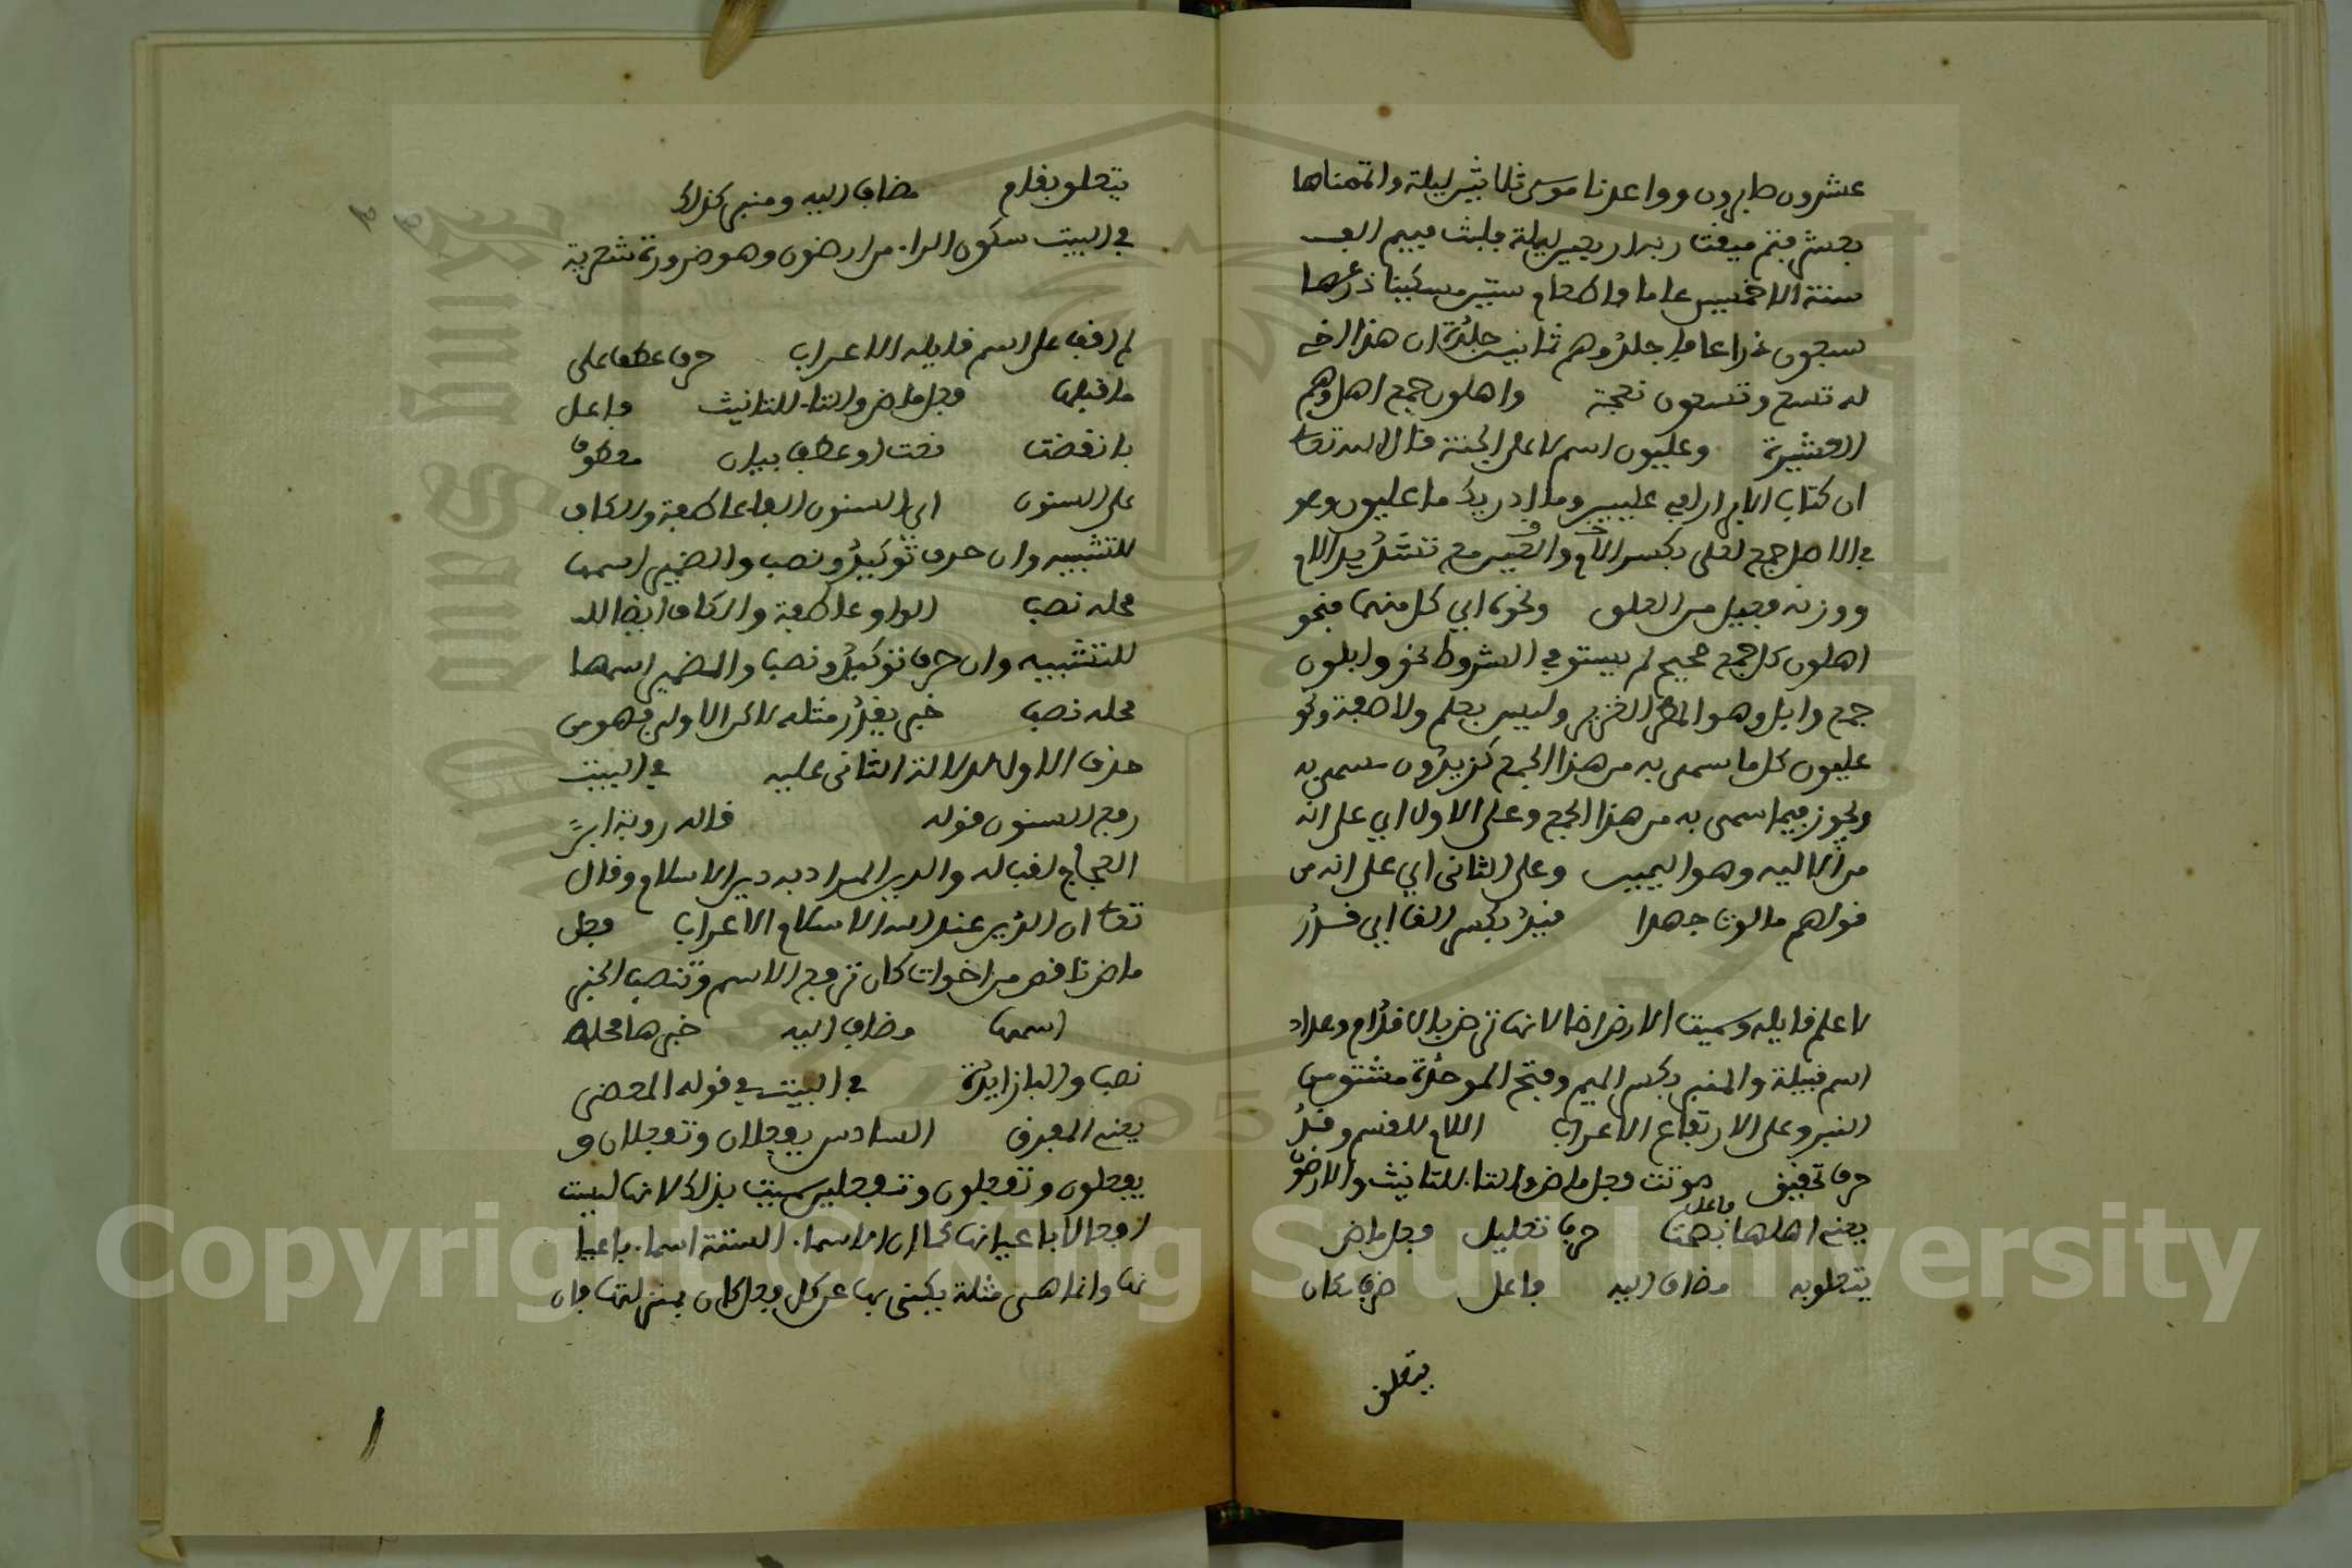 عشرون صابرون وواعدنا موسى ثلاثين ليلة واتممناها
بعشر فتم ميقات ربه اربعين ليلة فلبث فيهم الف
سنة الا خمسين عاما فاطعام ستين مسكينا ذرعها
سبعون ذراعا فاجلدوهم ثمانين جلدة ان هذا اخي
له تسع وتسعون نعجة واهلون جمع اهل وهم
العشيرة وعليون اسم لاعلى الجنة قال الله تعا
ان كتاب الابرار لفي عليين وما ادريك ما عليون وهو
في الاصل جمع لعلي بكسر اللام والعين مع تشديد اللام
ووزنه فعيل من العلو ونحوه اي كل منهما فنحو
اهلون كل جمع صحيح لم يستوفي الشروط نحو وابلون
جمع وابل وهو المطر الغزير وليس بعلم ولا صفة ونحو
عليون كل ما سمى به من هذا الجمع كزيدون مسمى به
ويجوز فيما سمى به من هذا الجمع وعلى الاول اي على انه
من الالية وهو اليمين وعلى الثاني اي على انه من
قولهم ما الوت جهدا قيد بكسر القاف اي قدر
لا علم قايله وسميت الارض ارضا لانها ترض بالاقدام وهداد
اسم قبيلة والمنبر بكسر الميم وفتح الموحدة مشتق من
النبر وعلى الارتفاع الاعراب اللام للقسم وقد
حرف تحقيق مؤنث فعل ماض والتا للتانيث والارضون
فاعل
يعني اهلها بضجت حرف تعليل فعل ماض
يتعلق به مضاف اليه فاعل ظرف مكان
يتعلق
يتعلق بقام مضاف اليه ومنبر كذلك
في البيت سكون الراء من ارضون وهو ضرورة شعرية
لم اقف على اسم قايله الاعراب حرف عطف على
ما قبلها فعل ماض والتا للتانيث فاعل
بانقضت نعت او عطف بيان معطوف
على السنون اي السنون الفا عاطفة والكاف
للتشبيه وان حرف توكيد ونصب والضمير اسمها
محله نصب الواو عاطفة والكاف ايضا لله
للتشبيه وان حرف توكيد ونصب والضمير اسمها
محله نصب خبر يقدر مثله لاكن الاولى فهو من
حذف الاول لدلالة الثاني عليه في البيت
رفع السنون قوله قاله روبة ابن
العجاج لقب له والدين المراد به دين الاسلام وقال
تعا ان الدين عند الله الاسلام الاعراب فعل
ماض ناقص من اخوات كان ترفع الاسم وتنصب الخبر
اسمها مضاف اليه خبرها محله
نصب والبا زايدة في البيت في قوله المعضى
يعني المفرق السادس يفعلان وتفعلان و
يفعلون وتفعلون وتفعلين سميت بذلك لانها ليست
افعالا باعيانها كما ان الاسماء الستة اسماء باعيا
نها وانما هي مثلة يكنى بها عن كل فعل كان بمنزلتها فان